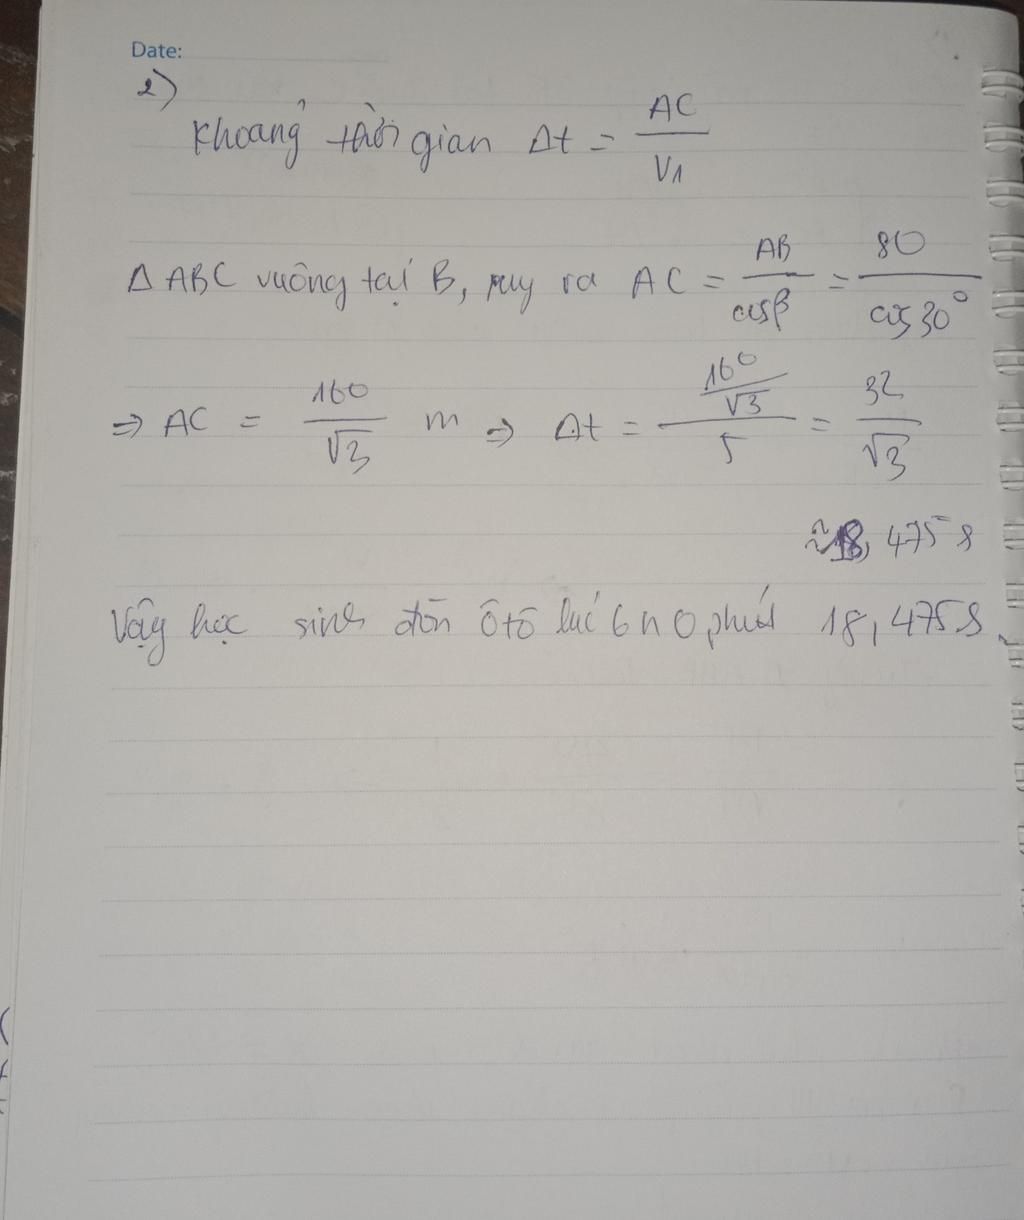 Date:
2)
Khoảng thời gian Δt = AC / V1
Δ ABC vuông tại B, suy ra AC = AB / cosβ = 80 / cos 30°
⇒ AC = 160 / √3 m ⇒ Δt = (160 / √3) / 5 = 32 / √3
≈ 18,475 s
Vậy học sinh đón ô tô lúc 6h 0 phút 18,475 s.